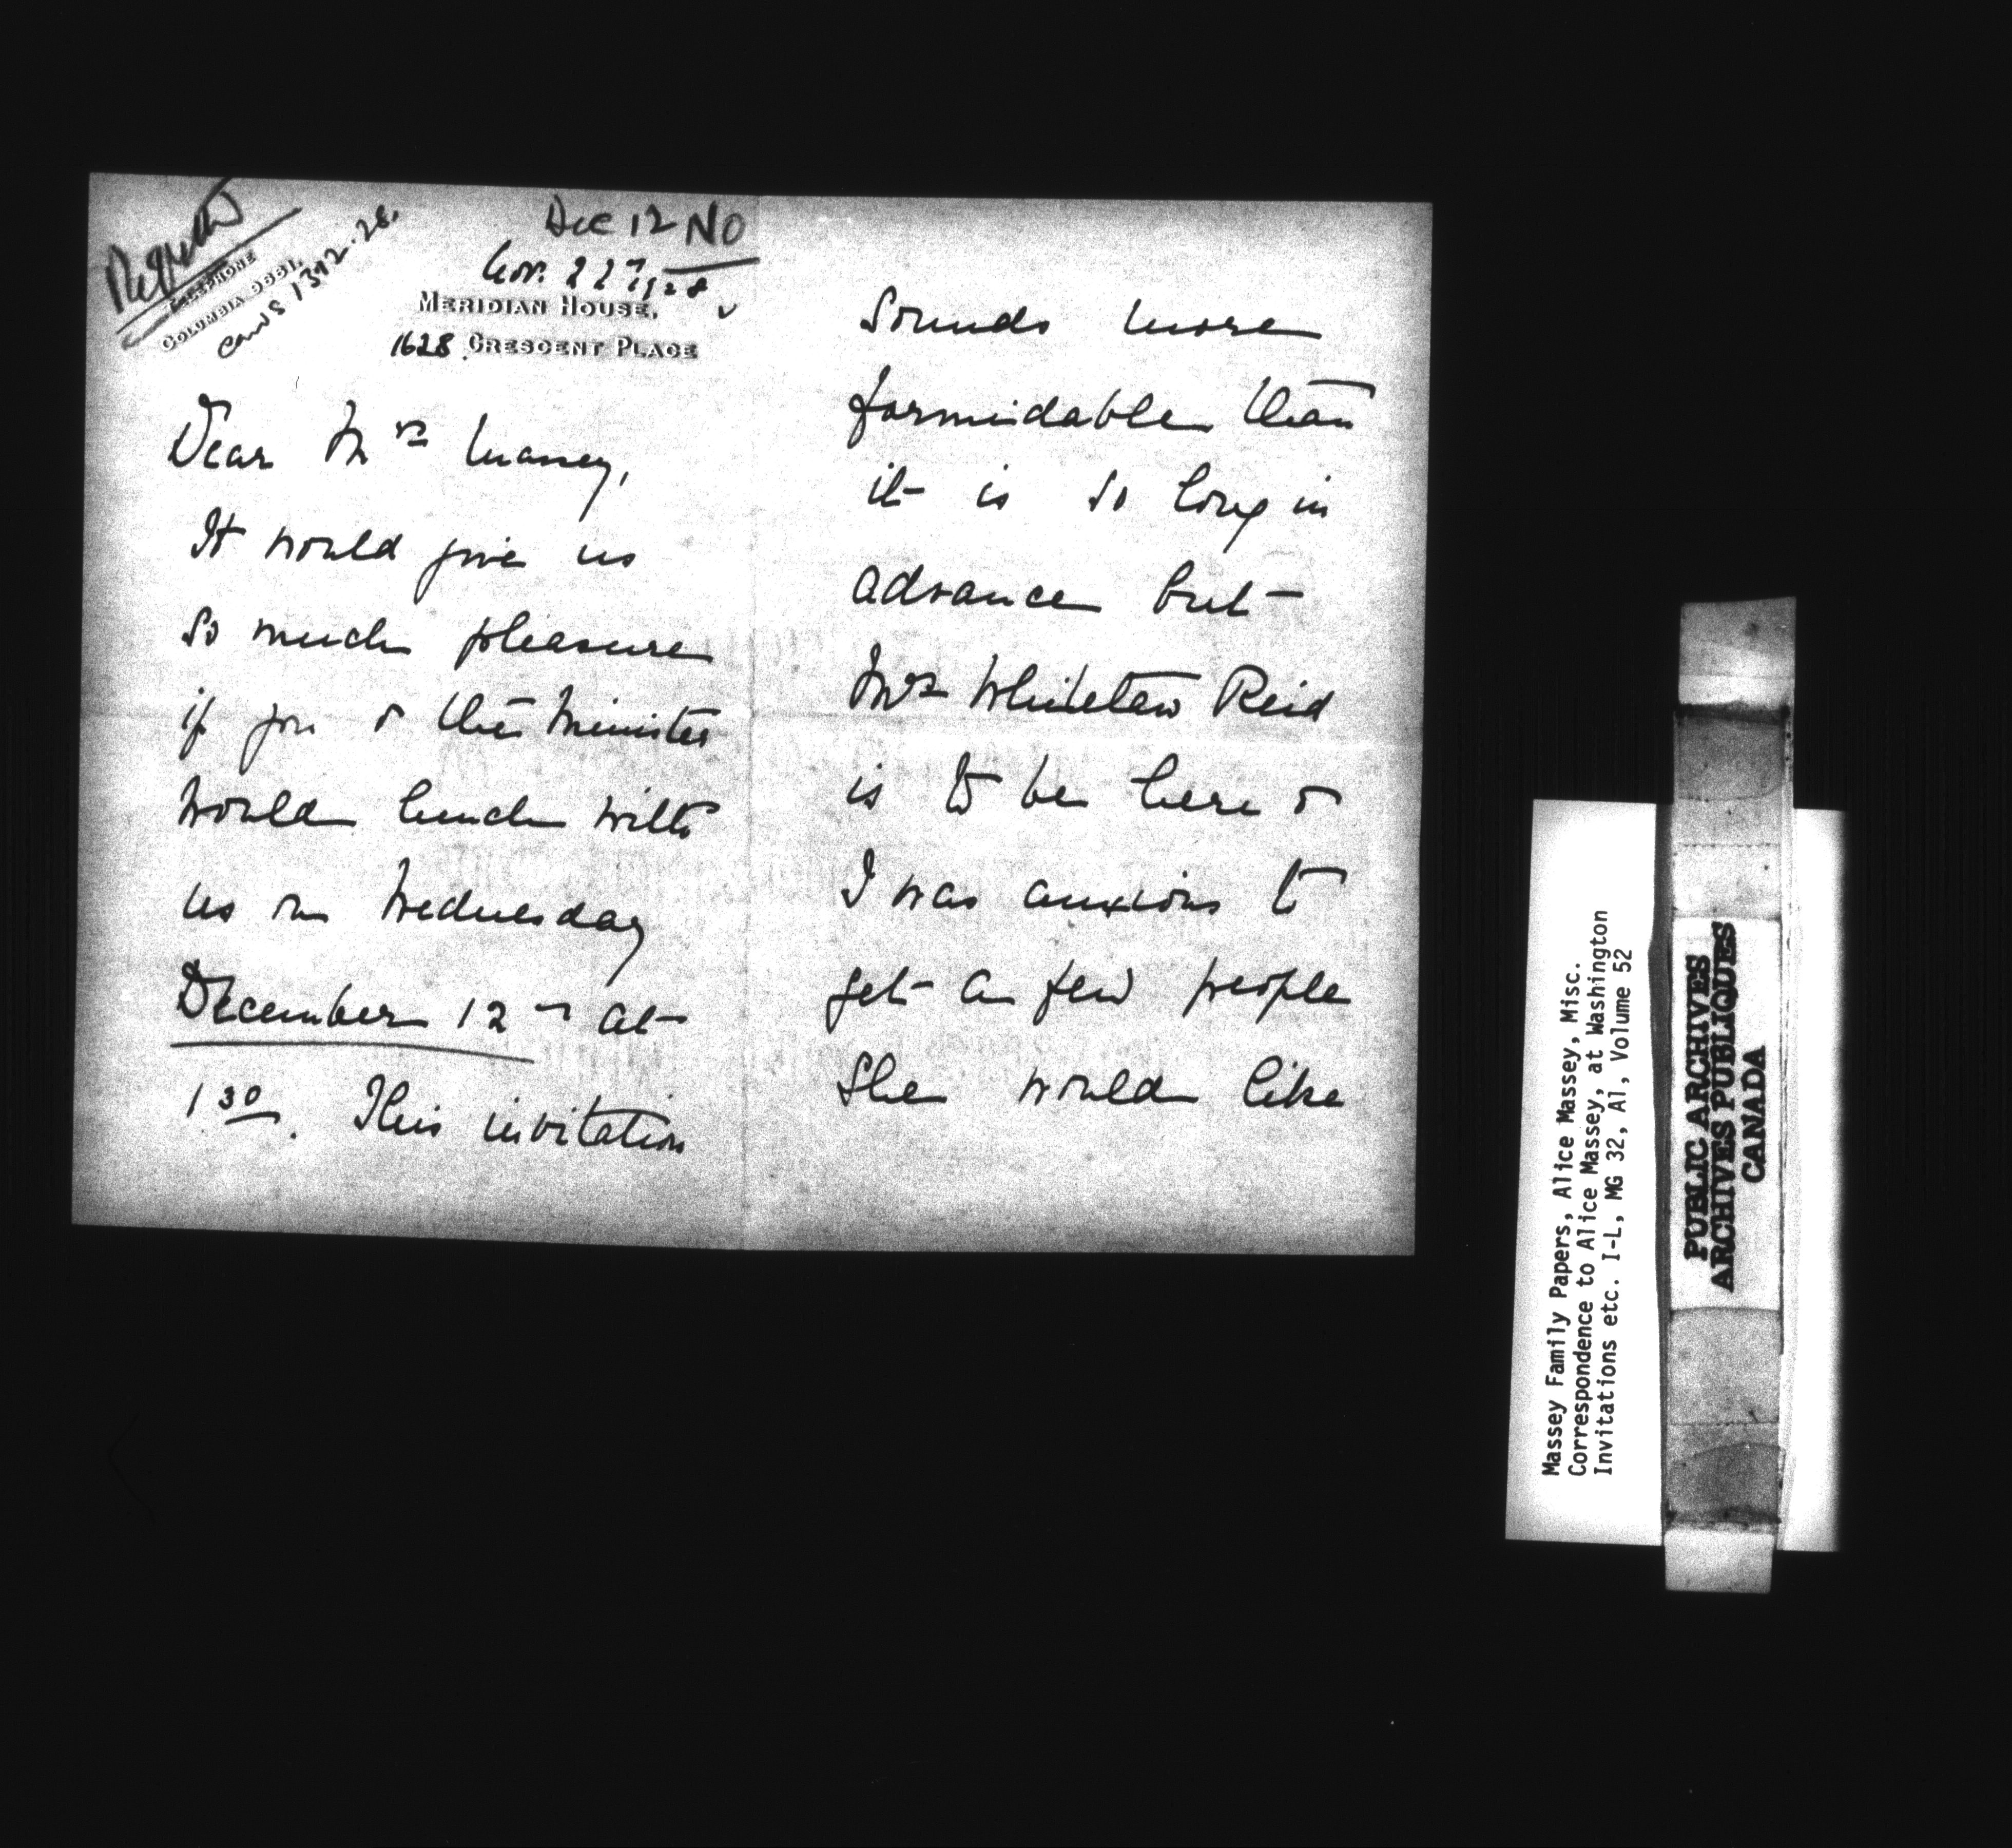 Regretted
TELEPHONE
COLUMBIA 9661.
Dec 12 NO
Nov. 22nd 1928
MERIDIAN HOUSE,
1628 CRESCENT PLACE
Dear Mrs Massey,
It would give us
so much pleasure
if you & the Minister
would lunch with
us on Wednesday
December 12th at
1.30. This invitation
sounds more
formidable than
it is so long in
advance but
Mrs Whitelaw Reid
is to be here &
I was anxious to
get a few people
she would like
Massey Family Papers, Alice Massey, Misc.
Correspondence to Alice Massey, at Washington
Invitations etc. I-L, MG 32, A1, Volume 52
PUBLIC ARCHIVES
ARCHIVES PUBLIQUES
CANADA